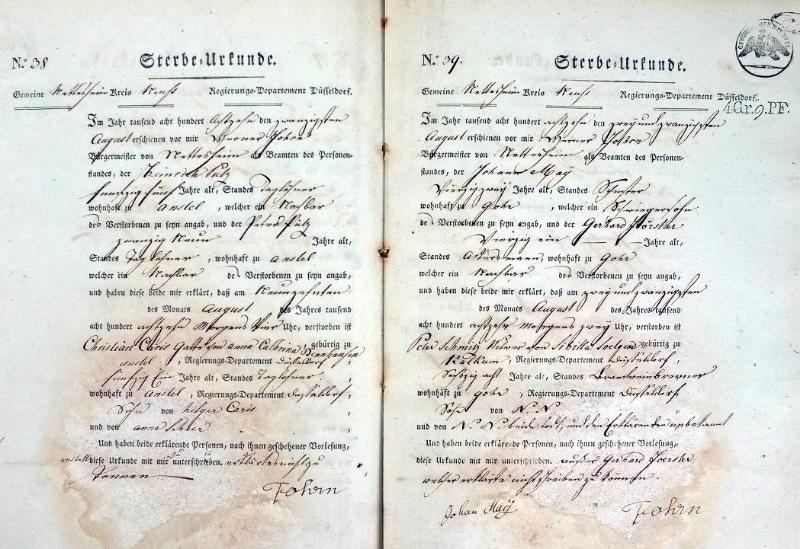 N.º 38 Sterbe-Urkunde.
Gemeine Nettesheim Kreis Neuß Regierungs-Departement Düsseldorf.
Im Jahr tausend acht hundert achtzehn den zwanzigsten
August erschienen vor mir
Bürgermeister von Nettesheim als Beamten des Personen-
standes, der Heinrich Pütz
fünfzig fünf Jahre alt, Standes Taglöhner
wohnhaft zu anstel, welcher ein Nachbar
des Verstorbenen zu seyn angab, und der Peter Pütz
zwanzig Neun Jahre alt,
Standes Taglöhner, wohnhaft zu anstel
welcher ein Nachbar des Verstorbenen zu seyn angab,
und haben diese beide mir erklärt, daß am Neunzehnten
des Monats August des Jahres tausend
acht hundert achtzehn Morgens Vier Uhr, verstorben ist
Christian Caris Gatte von anna Catharina gebürtig zu
anstel, Regierungs-Departement Düsseldorf
fünfzig Jahre alt, Standes Taglöhner
wohnhaft zu anstel, Regierungs-Departement Düsseldorf,
Sohn von Caris
und von anna
Und haben beide erklärende Personen, nach ihnen geschehener Vorlesung,
diese Urkunde mit mir unterschrieben. nicht zu
können
N.º 39. Sterbe-Urkunde.
Gemeine Nettesheim Kreis Neuß Regierungs-Departement Düsseldorf.
4Gr.9.PF.
Im Jahr tausend acht hundert achtzehn den zwey und zwanzigsten
August erschienen vor mir Werner
Bürgermeister von Nettesheim als Beamten des Personen-
standes, der Johann May
Vierzig zwey Jahre alt, Standes Schuster
wohnhaft zu Gohr, welcher ein Schwiegersohn
des Verstorbenen zu seyn angab, und der Gerhard Hoerster
Vierzig ein Jahre alt,
Standes Ackersmann, wohnhaft zu Gohr
welcher ein Nachbar des Verstorbenen zu seyn angab,
und haben diese beide mir erklärt, daß am zwey und zwanzigsten
des Monats August des Jahres tausend
acht hundert achtzehn Morgens zwey Uhr, verstorben ist
Peter Schmitz Witwer von Sibilla gebürtig zu
Regierungs-Departement Düsseldorf,
Sechzig acht Jahre alt, Standes Branntweinbrenner
wohnhaft zu Gohr, Regierungs-Departement Düsseldorf
Sohn von N. N
und von N. N. beide todt, und den Erklärenden unbekannt
Und haben beide erklärende Personen, nach ihnen geschehener Vorlesung,
diese Urkunde mit mir unterschrieben. außer Gerhard Hoerster
welcher erklärte nicht schreiben zu können.
Johan May